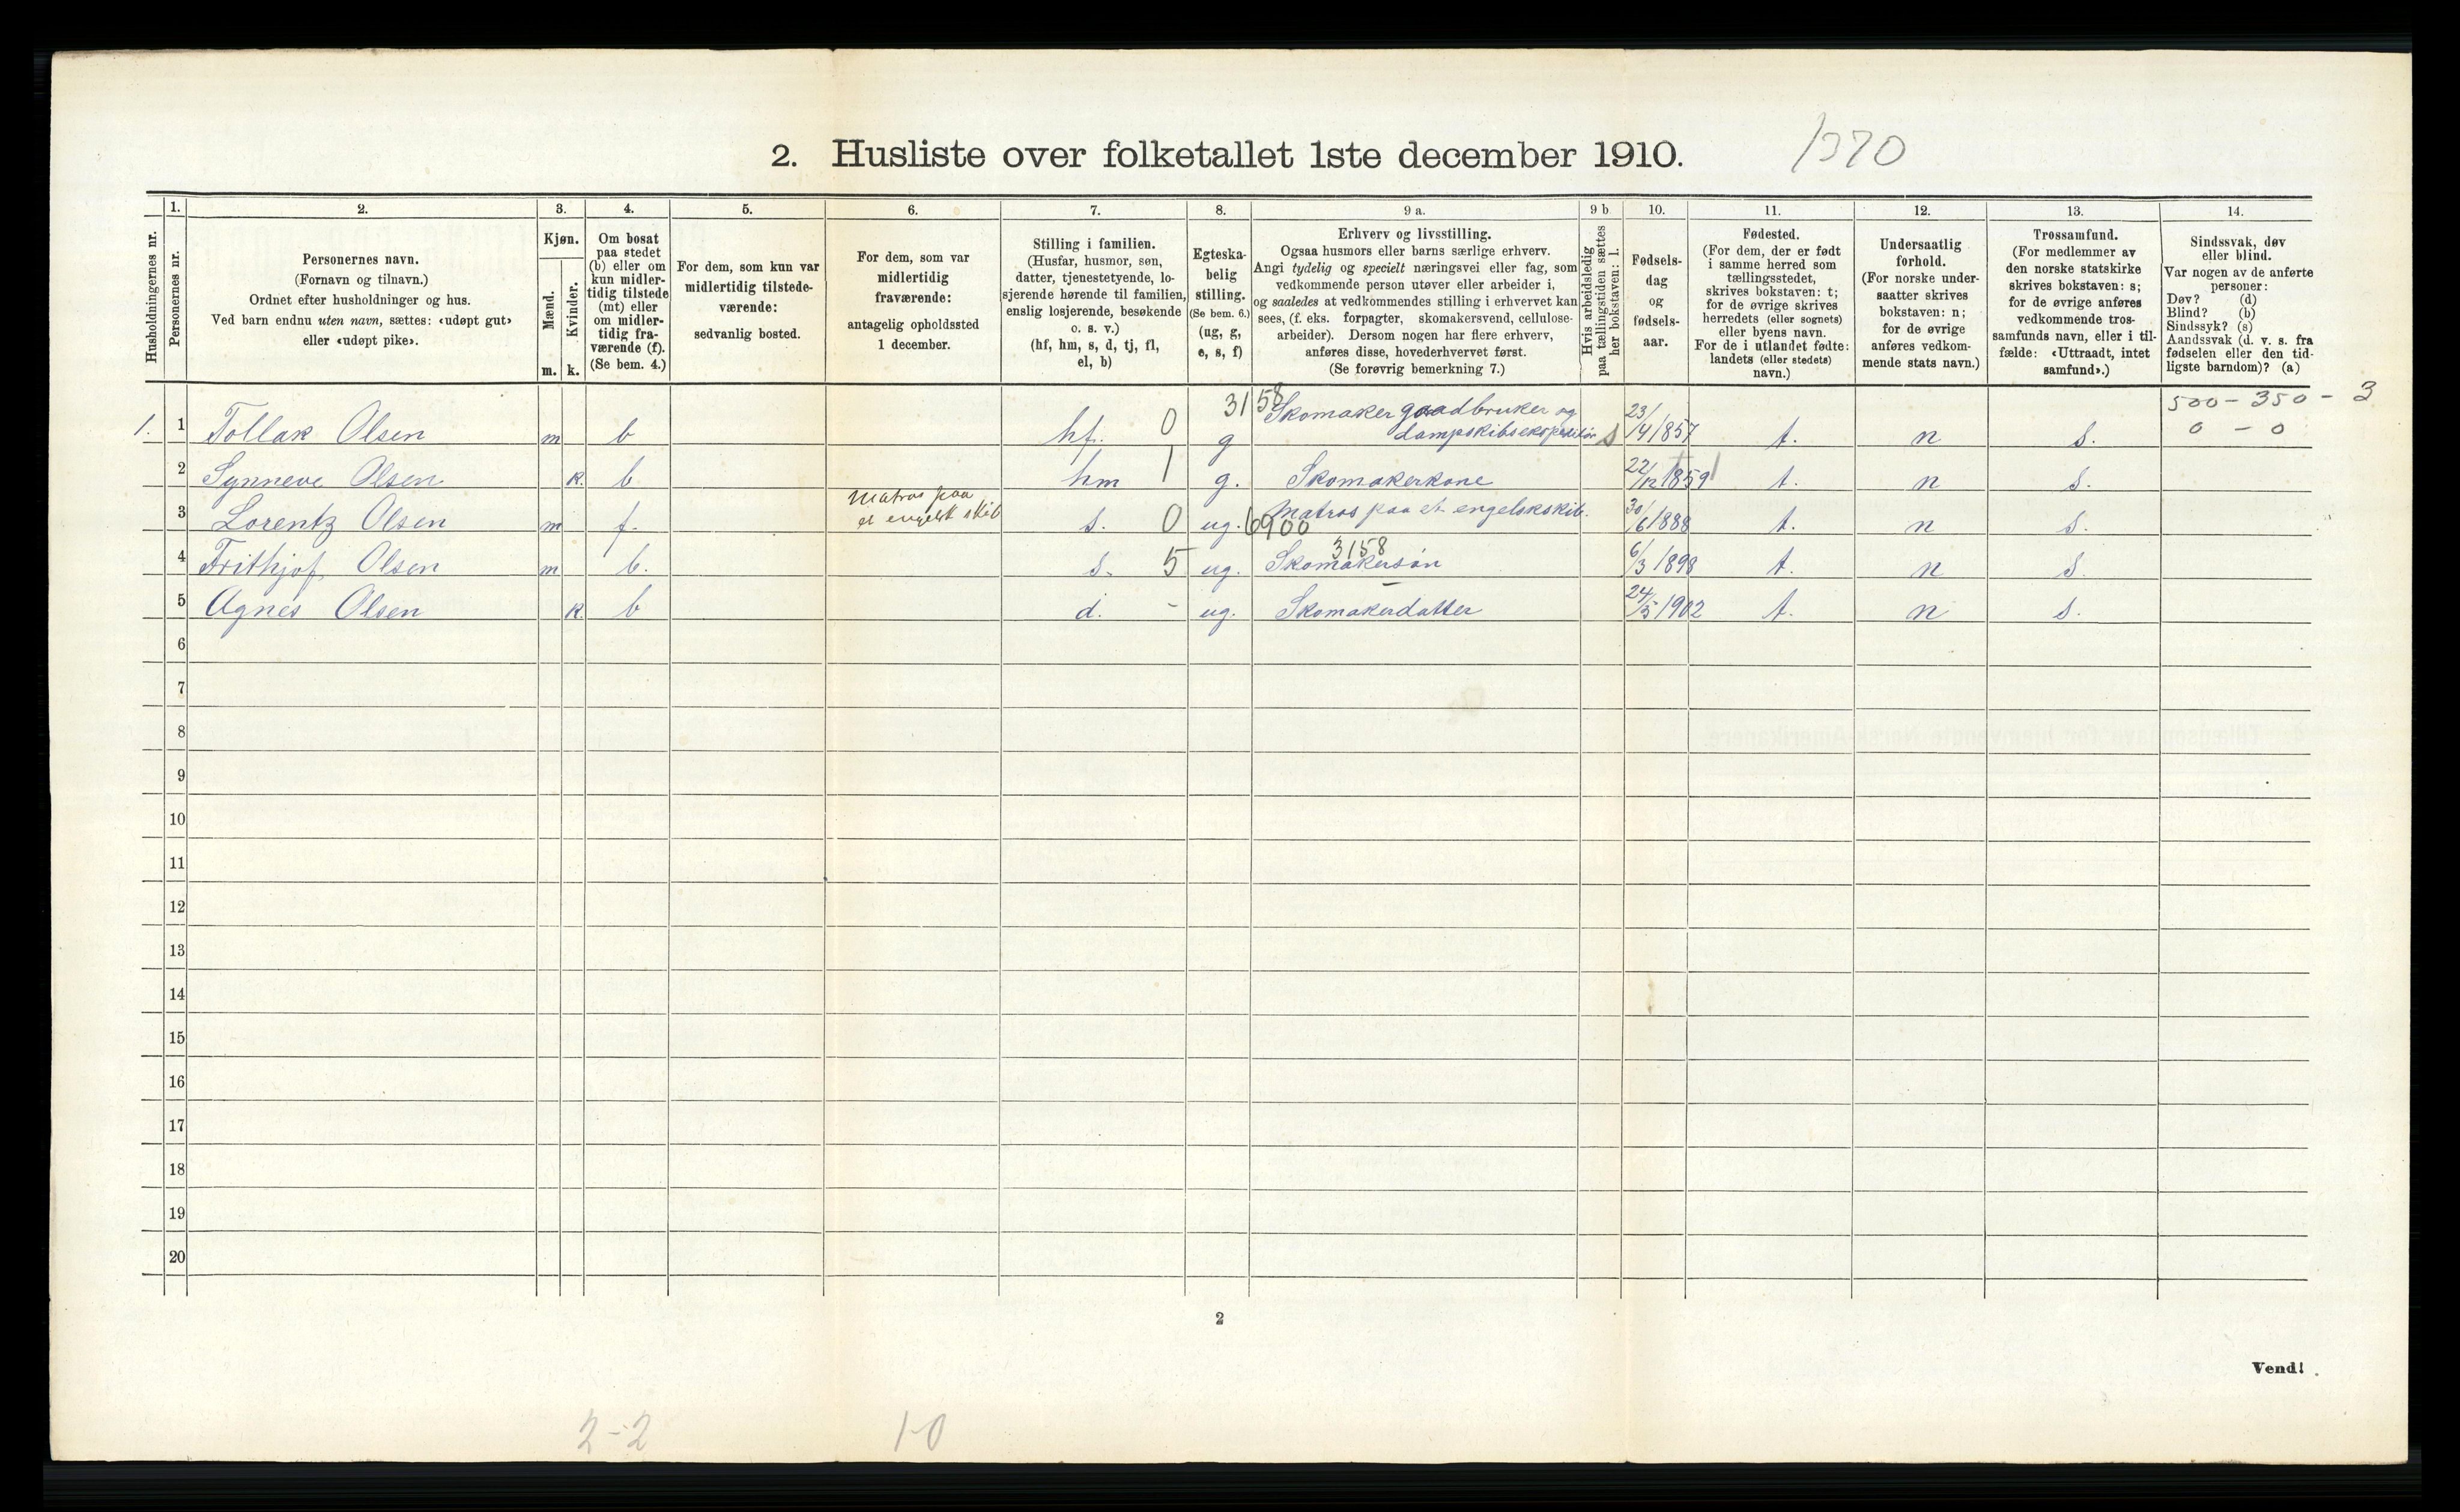 2. Husliste over folketallet 1ste december 1910.
1370
Husholdningernes nr.
1.
Personernes nr.
2.
Personernes navn.
(Fornavn og tilnavn.)
Ordnet efter husholdninger og hus.
Ved barn endnu uten navn, sættes: «udøpt gut»
eller «udøpt pike».
3.
Kjøn.
Mænd.
Kvinder.
m. k.
4.
Om bosat
paa stedet
(b) eller om
kun midler-
tidig tilstede
(mt) eller
om midler-
tidig fra-
værende (f).
(Se bem. 4.)
5.
For dem, som kun var
midlertidig tilstede-
værende:
sedvanlig bosted.
6.
For dem, som var
midlertidig
fraværende:
antagelig opholdssted
1 december.
7.
Stilling i familien.
(Husfar, husmor, søn,
datter, tjenestetyende, lo-
sjerende hørende til familien,
enslig losjerende, besøkende
o. s. v.)
(hf, hm, s, d, tj, fl,
el, b)
8.
Egteska-
belig
stilling.
(Se bem. 6.)
(ug, g,
e, s, f)
9 a.
Erhverv og livsstilling.
Ogsaa husmors eller barns særlige erhverv.
Angi tydelig og specielt næringsvei eller fag, som
vedkommende person utøver eller arbeider i,
og saaledes at vedkommendes stilling i erhvervet kan
sees, (f. eks. forpagter, skomakersvend, cellulose-
arbeider). Dersom nogen har flere erhverv,
anføres disse, hovederhvervet først.
(Se forøvrig bemerkning 7.)
9 b
Hvis arbeidsledig
paa tællingstiden sættes
her bokstaven: l.
10.
Fødsels-
dag
og
fødsels-
aar.
11.
Fødested.
(For dem, der er født
i samme herred som
tællingsstedet,
skrives bokstaven: t;
for de øvrige skrives
herredets (eller sognets)
eller byens navn.
For de i utlandet fødte:
landets (eller stedets)
navn.)
12.
Undersaatlig
forhold.
(For norske under-
saatter skrives
bokstaven: n;
for de øvrige
anføres vedkom-
mende stats navn.)
13.
Trossamfund.
(For medlemmer av
den norske statskirke
skrives bokstaven: s;
for de øvrige anføres
vedkommende tros-
samfunds navn, eller i til-
fælde: «Uttraadt, intet
samfund».)
14.
Sindssvak, døv
eller blind.
Var nogen av de anførte
personer:
Døv? (d)
Blind? (b)
Sindssyk? (s)
Aandssvak (d. v. s. fra
fødselen eller den tid-
ligste barndom)? (a)
500 - 350 - 3
0 - 0
1. 1 Tollak Olsen m b hf. 0 g 3158 Skomaker gaadbruker og
dampskibsekspeditør s 23/4 1857 t. n s.
2 Synneve Olsen k. b hm 1 g. Skomakerkone 22/12 1859 t. n s.
3 Lorentz Olsen m f. Matros paa
et engelsk skib s. 0 ug. 6900 Matros paa et engelskskib. 30/6 1888 t. n s.
4 Frithjof Olsen m b. s. 5 ug. 3158 Skomakersøn 6/3 1898 t. n s.
5 Agnes Olsen k. b d. - ug. Skomakerdatter 24/5 1902 t. n s.
6
7
8
9
10
11
12
13
14
15
16
17
18
19
20
2
Vend!
2-2 1-0